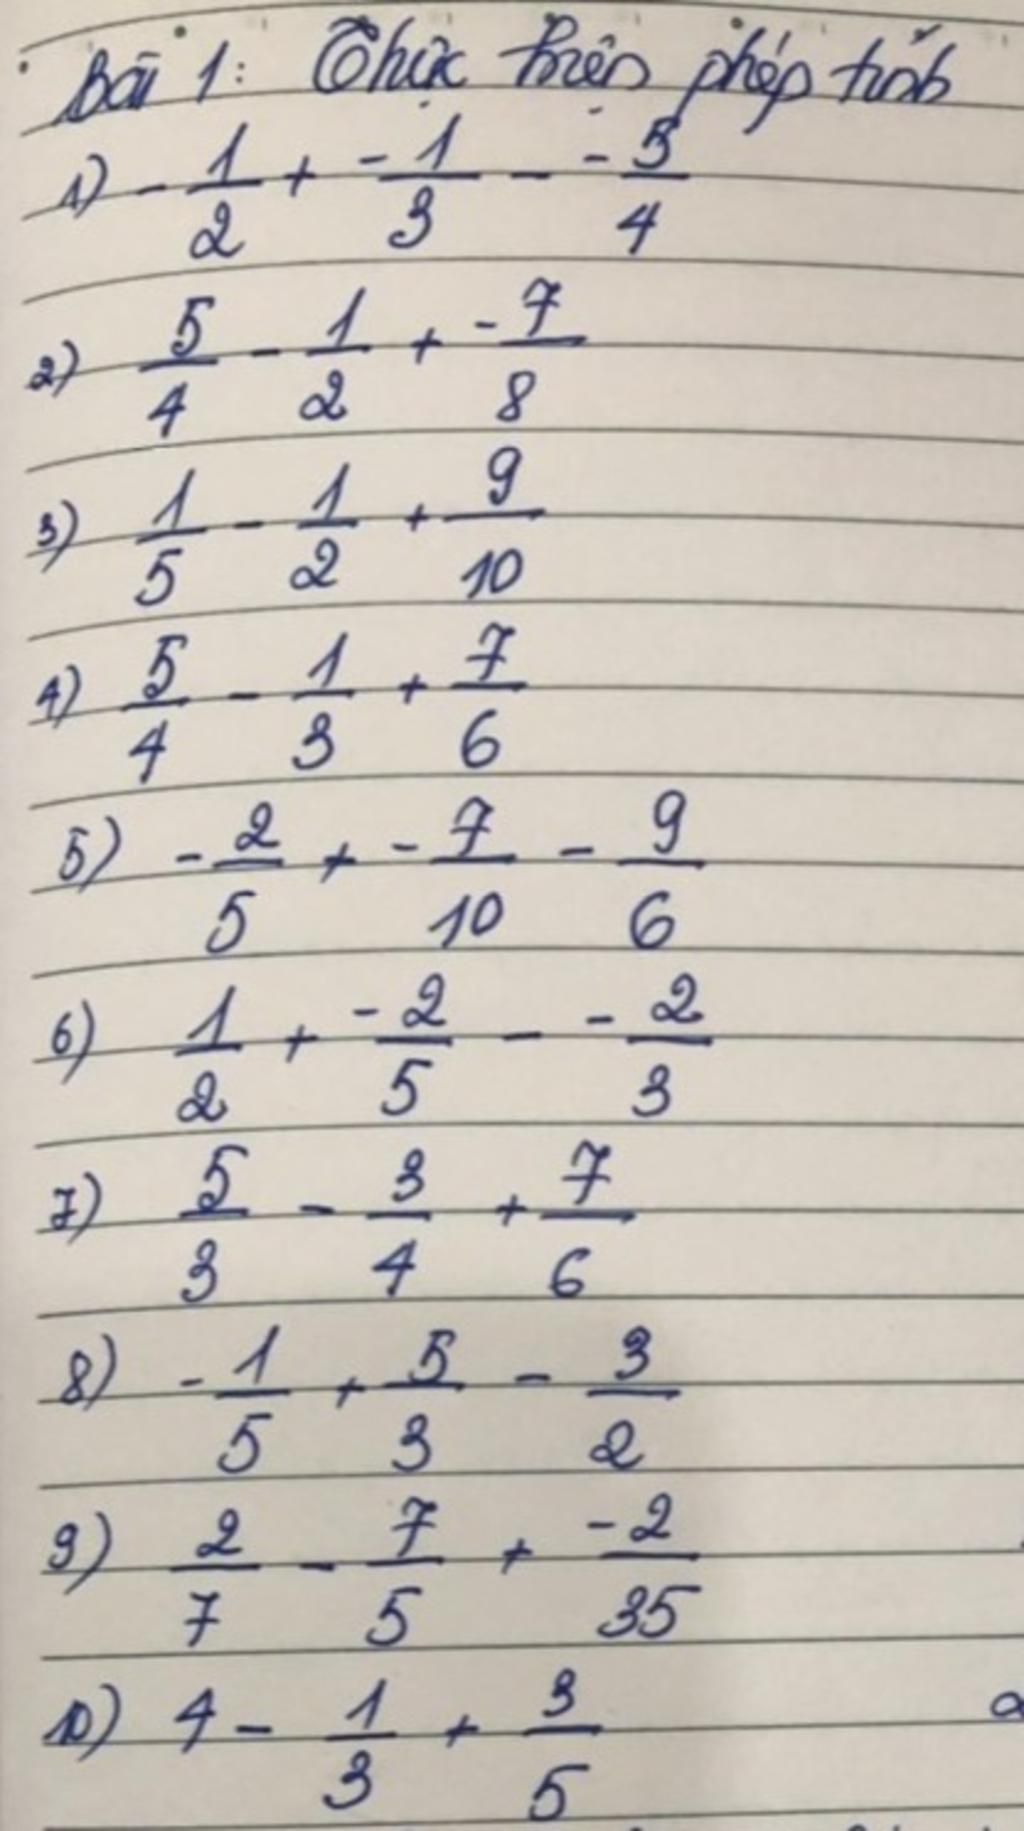 Bài 1: Thực hiện phép tính
1) - 1/2 + -1/3 - -5/4
2) 5/4 - 1/2 + -7/8
3) 1/5 - 1/2 + 9/10
4) 5/4 - 1/3 + 7/6
5) - 2/5 + -7/10 - 9/6
6) 1/2 + -2/5 - -2/3
7) 5/3 - 3/4 + 7/6
8) - 1/5 + 5/3 - 3/2
9) 2/7 - 7/5 + -2/35
10) 4 - 1/3 + 3/5